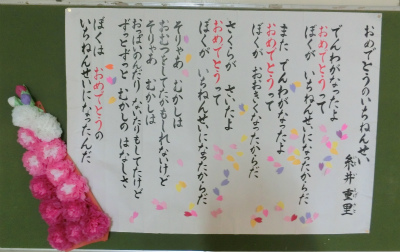 おめでとうのいちねんせい
糸井 重里
でんわがなったよ
おめでとうって
ぼくが いちねんせいになったからだ
また でんわがなったよ
おめでとうって
ぼくが おおきくなったからだ
さくらが さいたよ
おめでとうって
ぼくが いちねんせいになったからだ
そりゃあ むかしは
おむつをしてたかもしれないけど
そりゃあ むかしは
おっぱいのんだり ないたりもしてたけど
ずっとずっと むかしのはなしさ
ぼくは おめでとうの
いちねんせいになったんだ